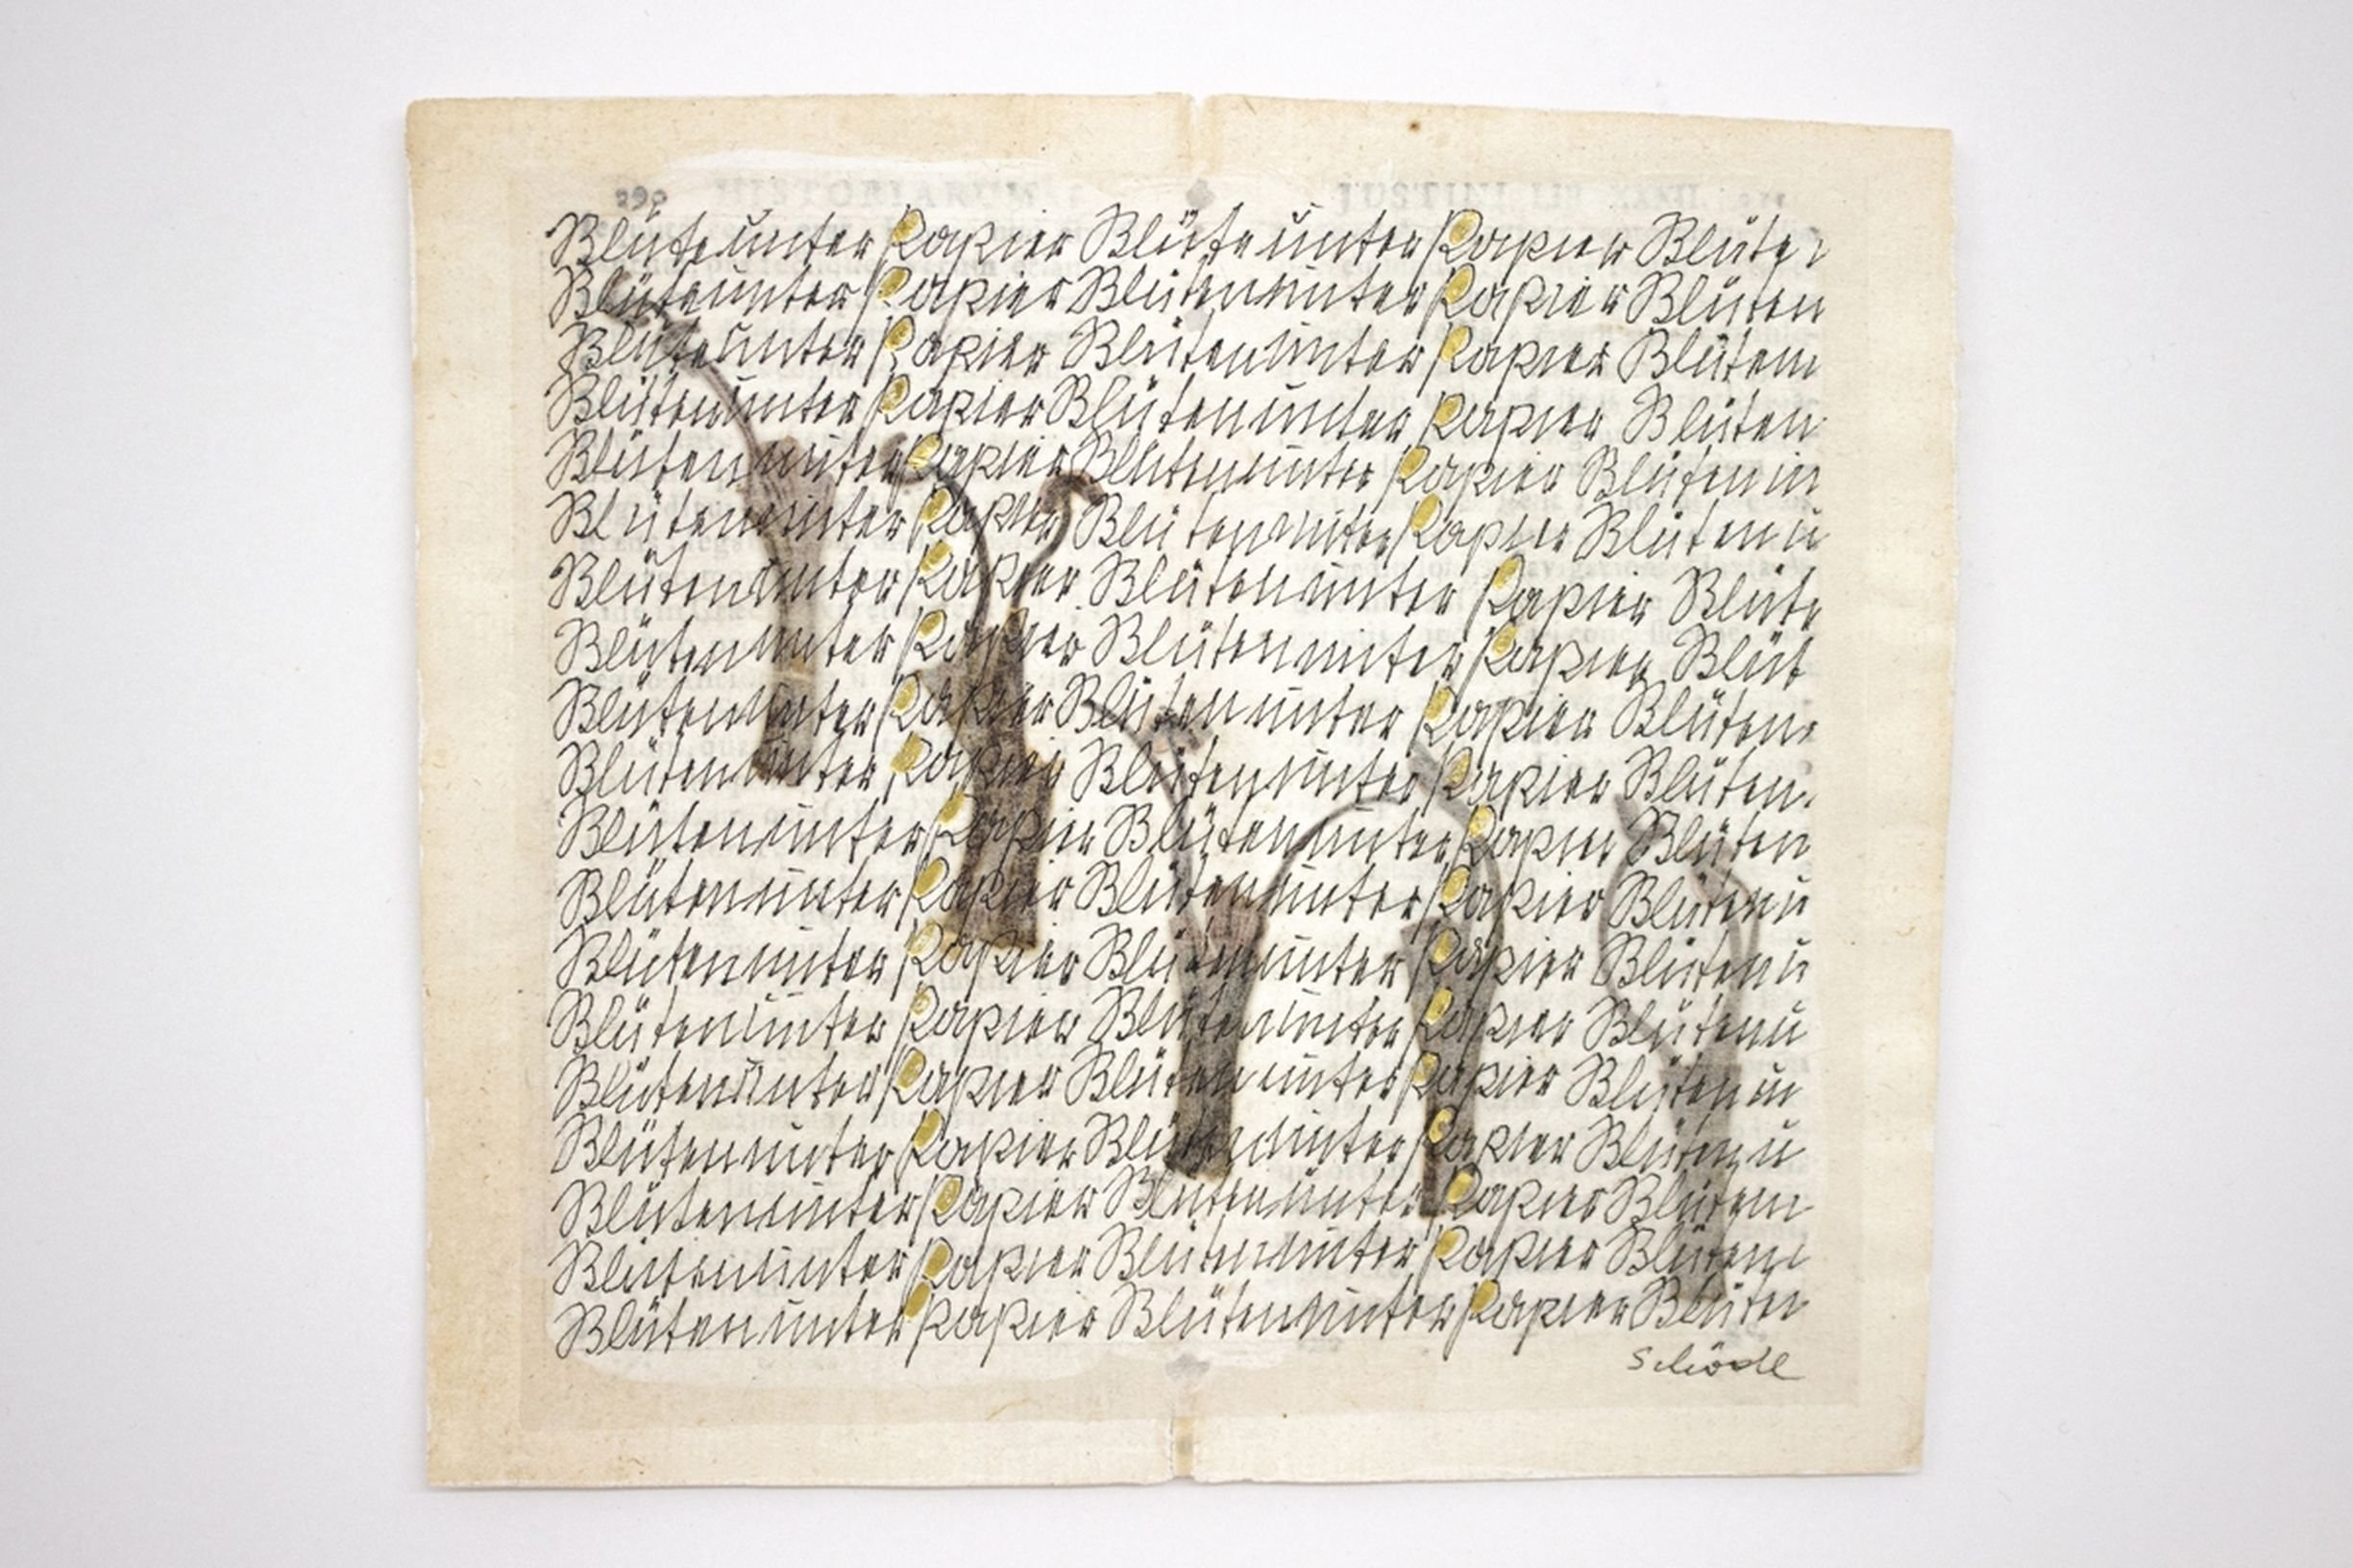 290 HISTORIARUM JUSTINI LIB. XXXII
Blüte unter Papier Blüte unter Papier Blüte
Blüte unter Papier Blüten unter Papier Blüten
Blüte unter Papier Blüten unter Papier Blüten
Blüten unter Papier Blüten unter Papier Blüten
Blüten unter Papier Blüten unter Papier Blüten
Blüten unter Papier Blüten unter Papier Blüten u
Blüten unter Papier Blüten unter Papier Blüte
Blüten unter Papier Blüten unter Papier Blüt
Blüten unter Papier Blüten unter Papier Blüten
Blüten unter Papier Blüten unter Papier Blüten
Blüten unter Papier Blüten unter Papier Blüten
Blüten unter Papier Blüten unter Papier Blüten u
Blüten unter Papier Blüten unter Papier Blüten u
Blüten unter Papier Blüten unter Papier Blüten u
Blüten unter Papier Blüten unter Papier Blüten u
Blüten unter Papier Blüten unter Papier Blüten u
Blüten unter Papier Blüten unter Papier Blüten
Blüten unter Papier Blüten unter Papier Blüten
Blüten unter Papier Blüten unter Papier Blüten
Schödl